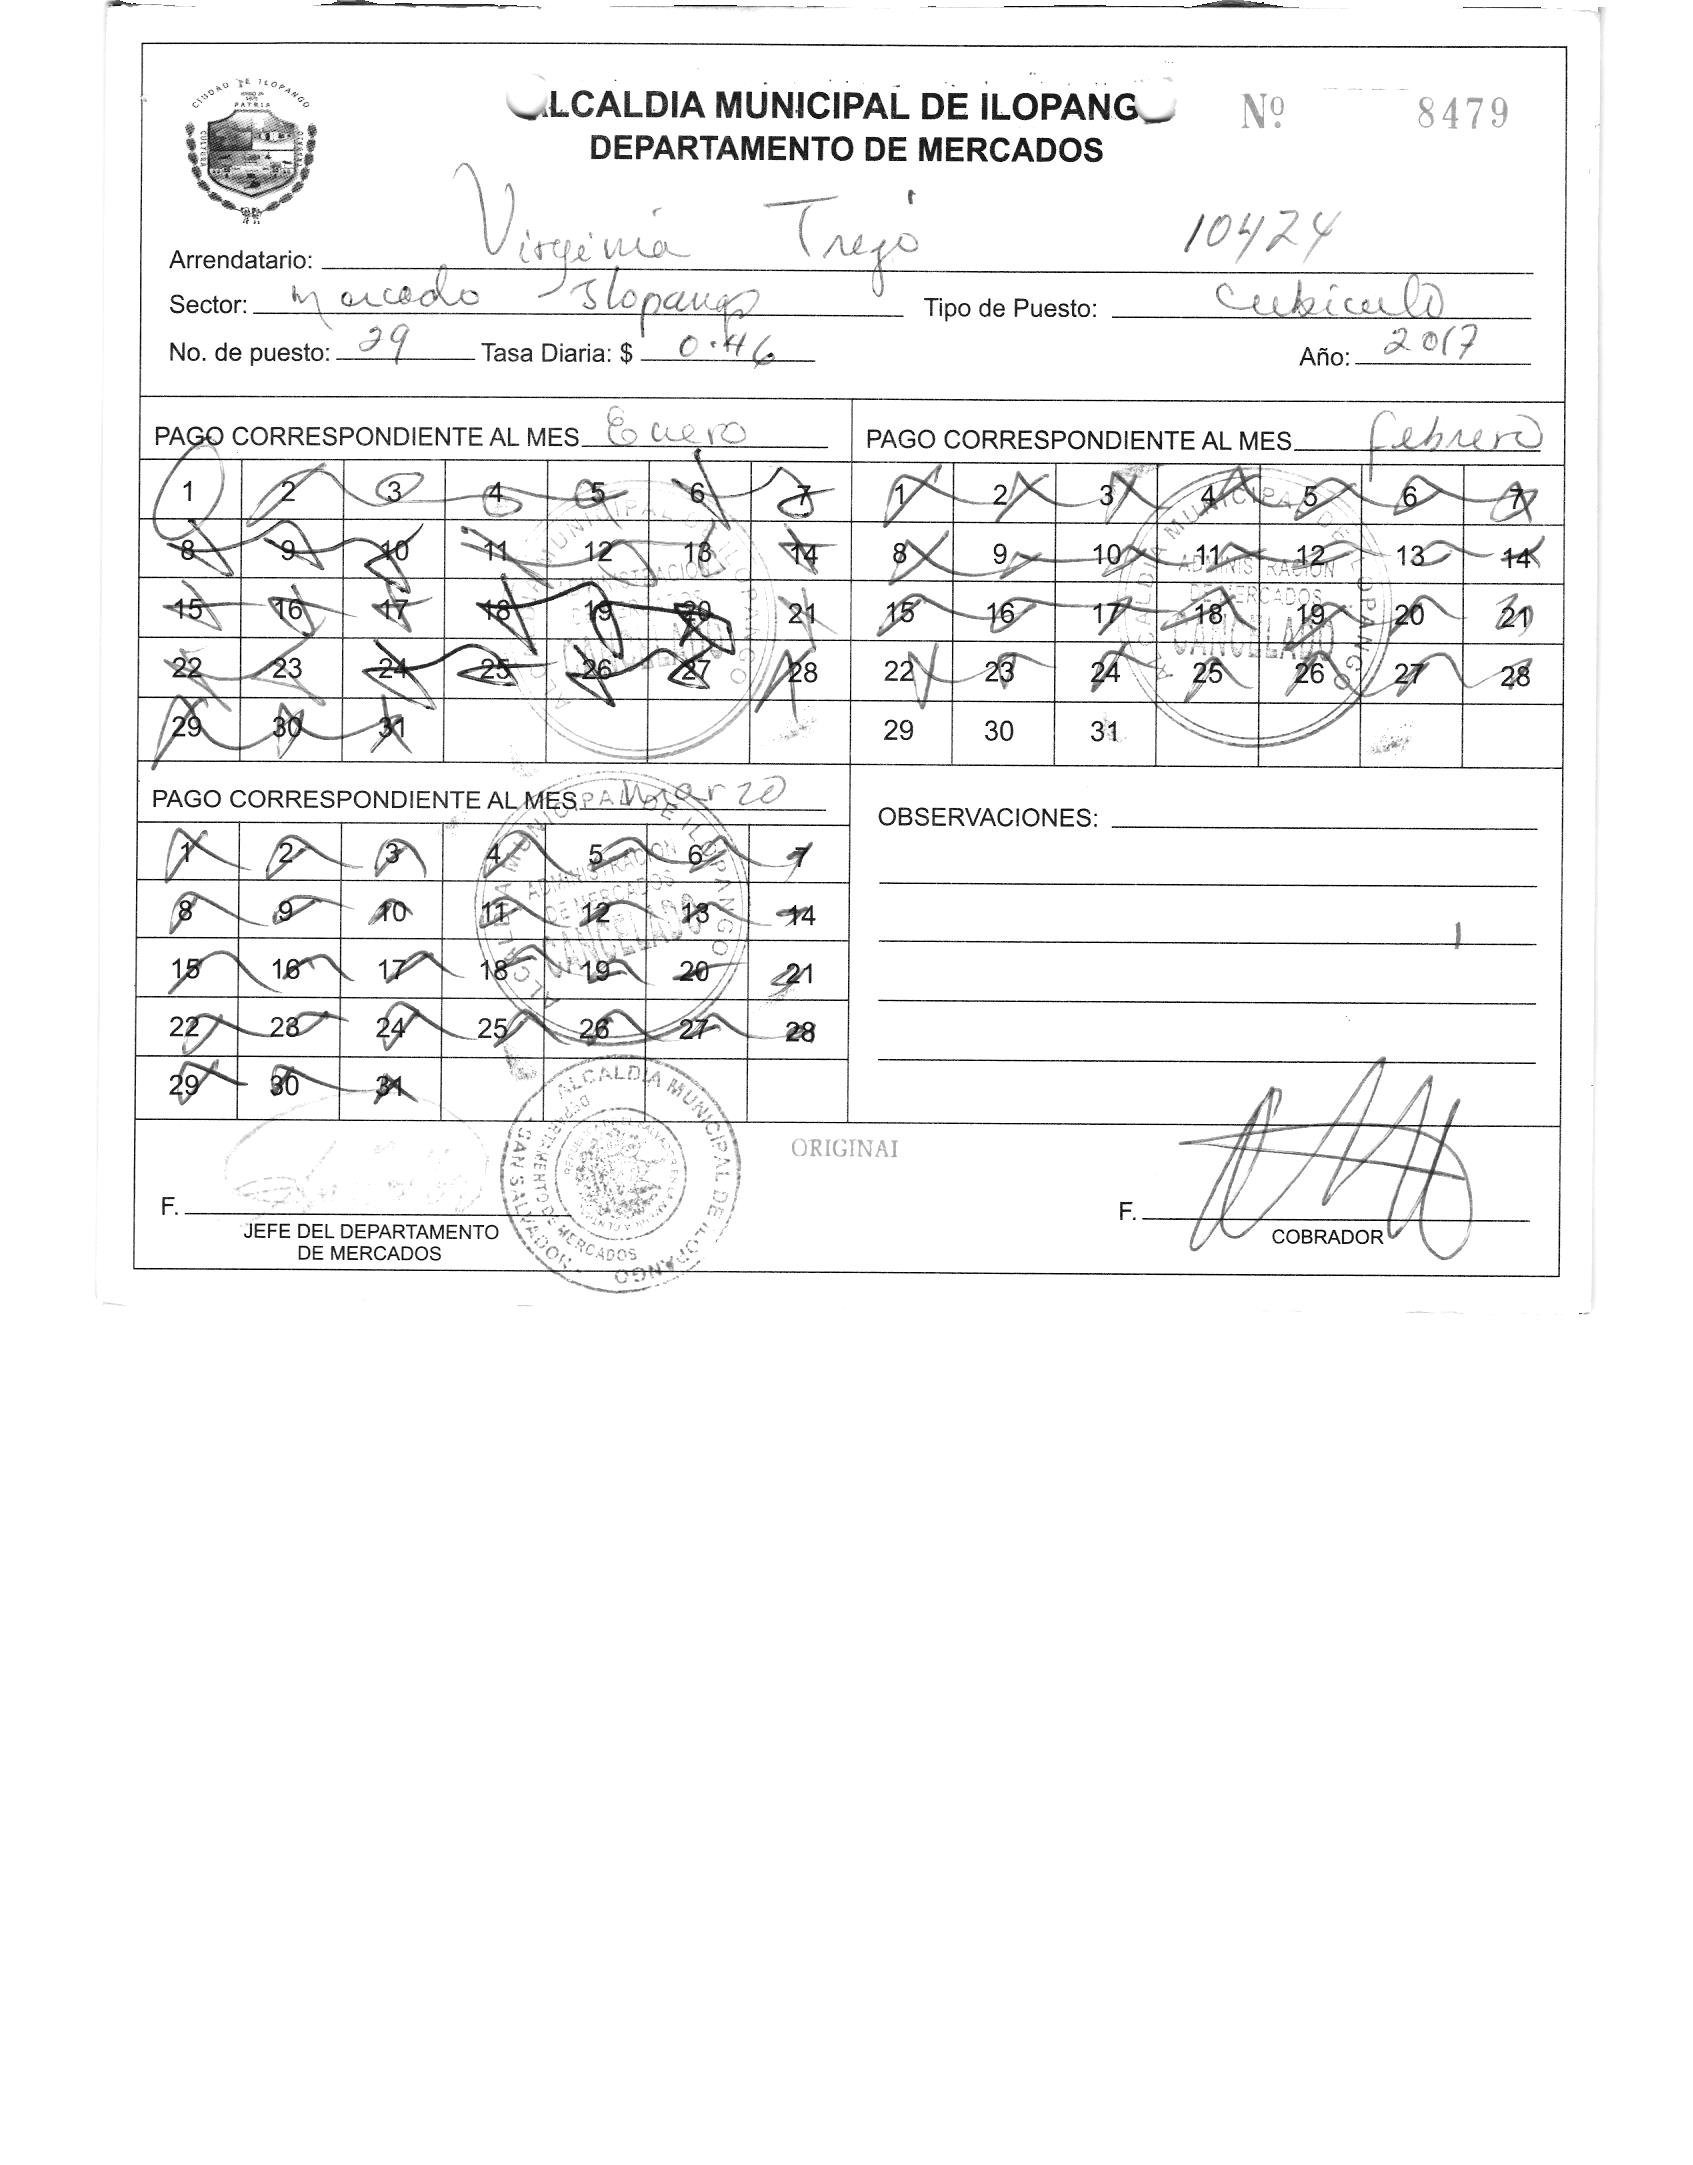 CIUDAD DE ILOPANGO
PATRIA
CULTURA
ALCALDIA MUNICIPAL DE ILOPANG
DEPARTAMENTO DE MERCADOS
Nº 8479
Arrendatario: Virginia Trejo 10424
Sector: Mercado Ilopango Tipo de Puesto: Cubiculo
No. de puesto: 29 Tasa Diaria: $ 0.46 Año: 2017
PAGO CORRESPONDIENTE AL MES Enero
1 2 3 4 5 6 7
8 9 10 11 12 13 14
15 16 17 18 19 20 21
22 23 24 25 26 27 28
29 30 31
PAGO CORRESPONDIENTE AL MES febrero
1 2 3 4 5 6 7
8 9 10 11 12 13 14
15 16 17 18 19 20 21
22 23 24 25 26 27 28
29 30 31
ALCALDIA MUNICIPAL DE ILOPANGO
ADMINISTRACION
DE MERCADOS
CANCELADO
PAGO CORRESPONDIENTE AL MES Marzo
1 2 3 4 5 6 7
8 9 10 11 12 13 14
15 16 17 18 19 20 21
22 23 24 25 26 27 28
29 30 31
ALCALDIA MUNICIPAL DE ILOPANGO
ADMINISTRACION
DE MERCADOS
CANCELADO
OBSERVACIONES:
ORIGINAL
ALCALDIA MUNICIPAL DE ILOPANGO
SAN SALVADOR
DEPARTAMENTO DE MERCADOS
F.
JEFE DEL DEPARTAMENTO
DE MERCADOS
F.
COBRADOR